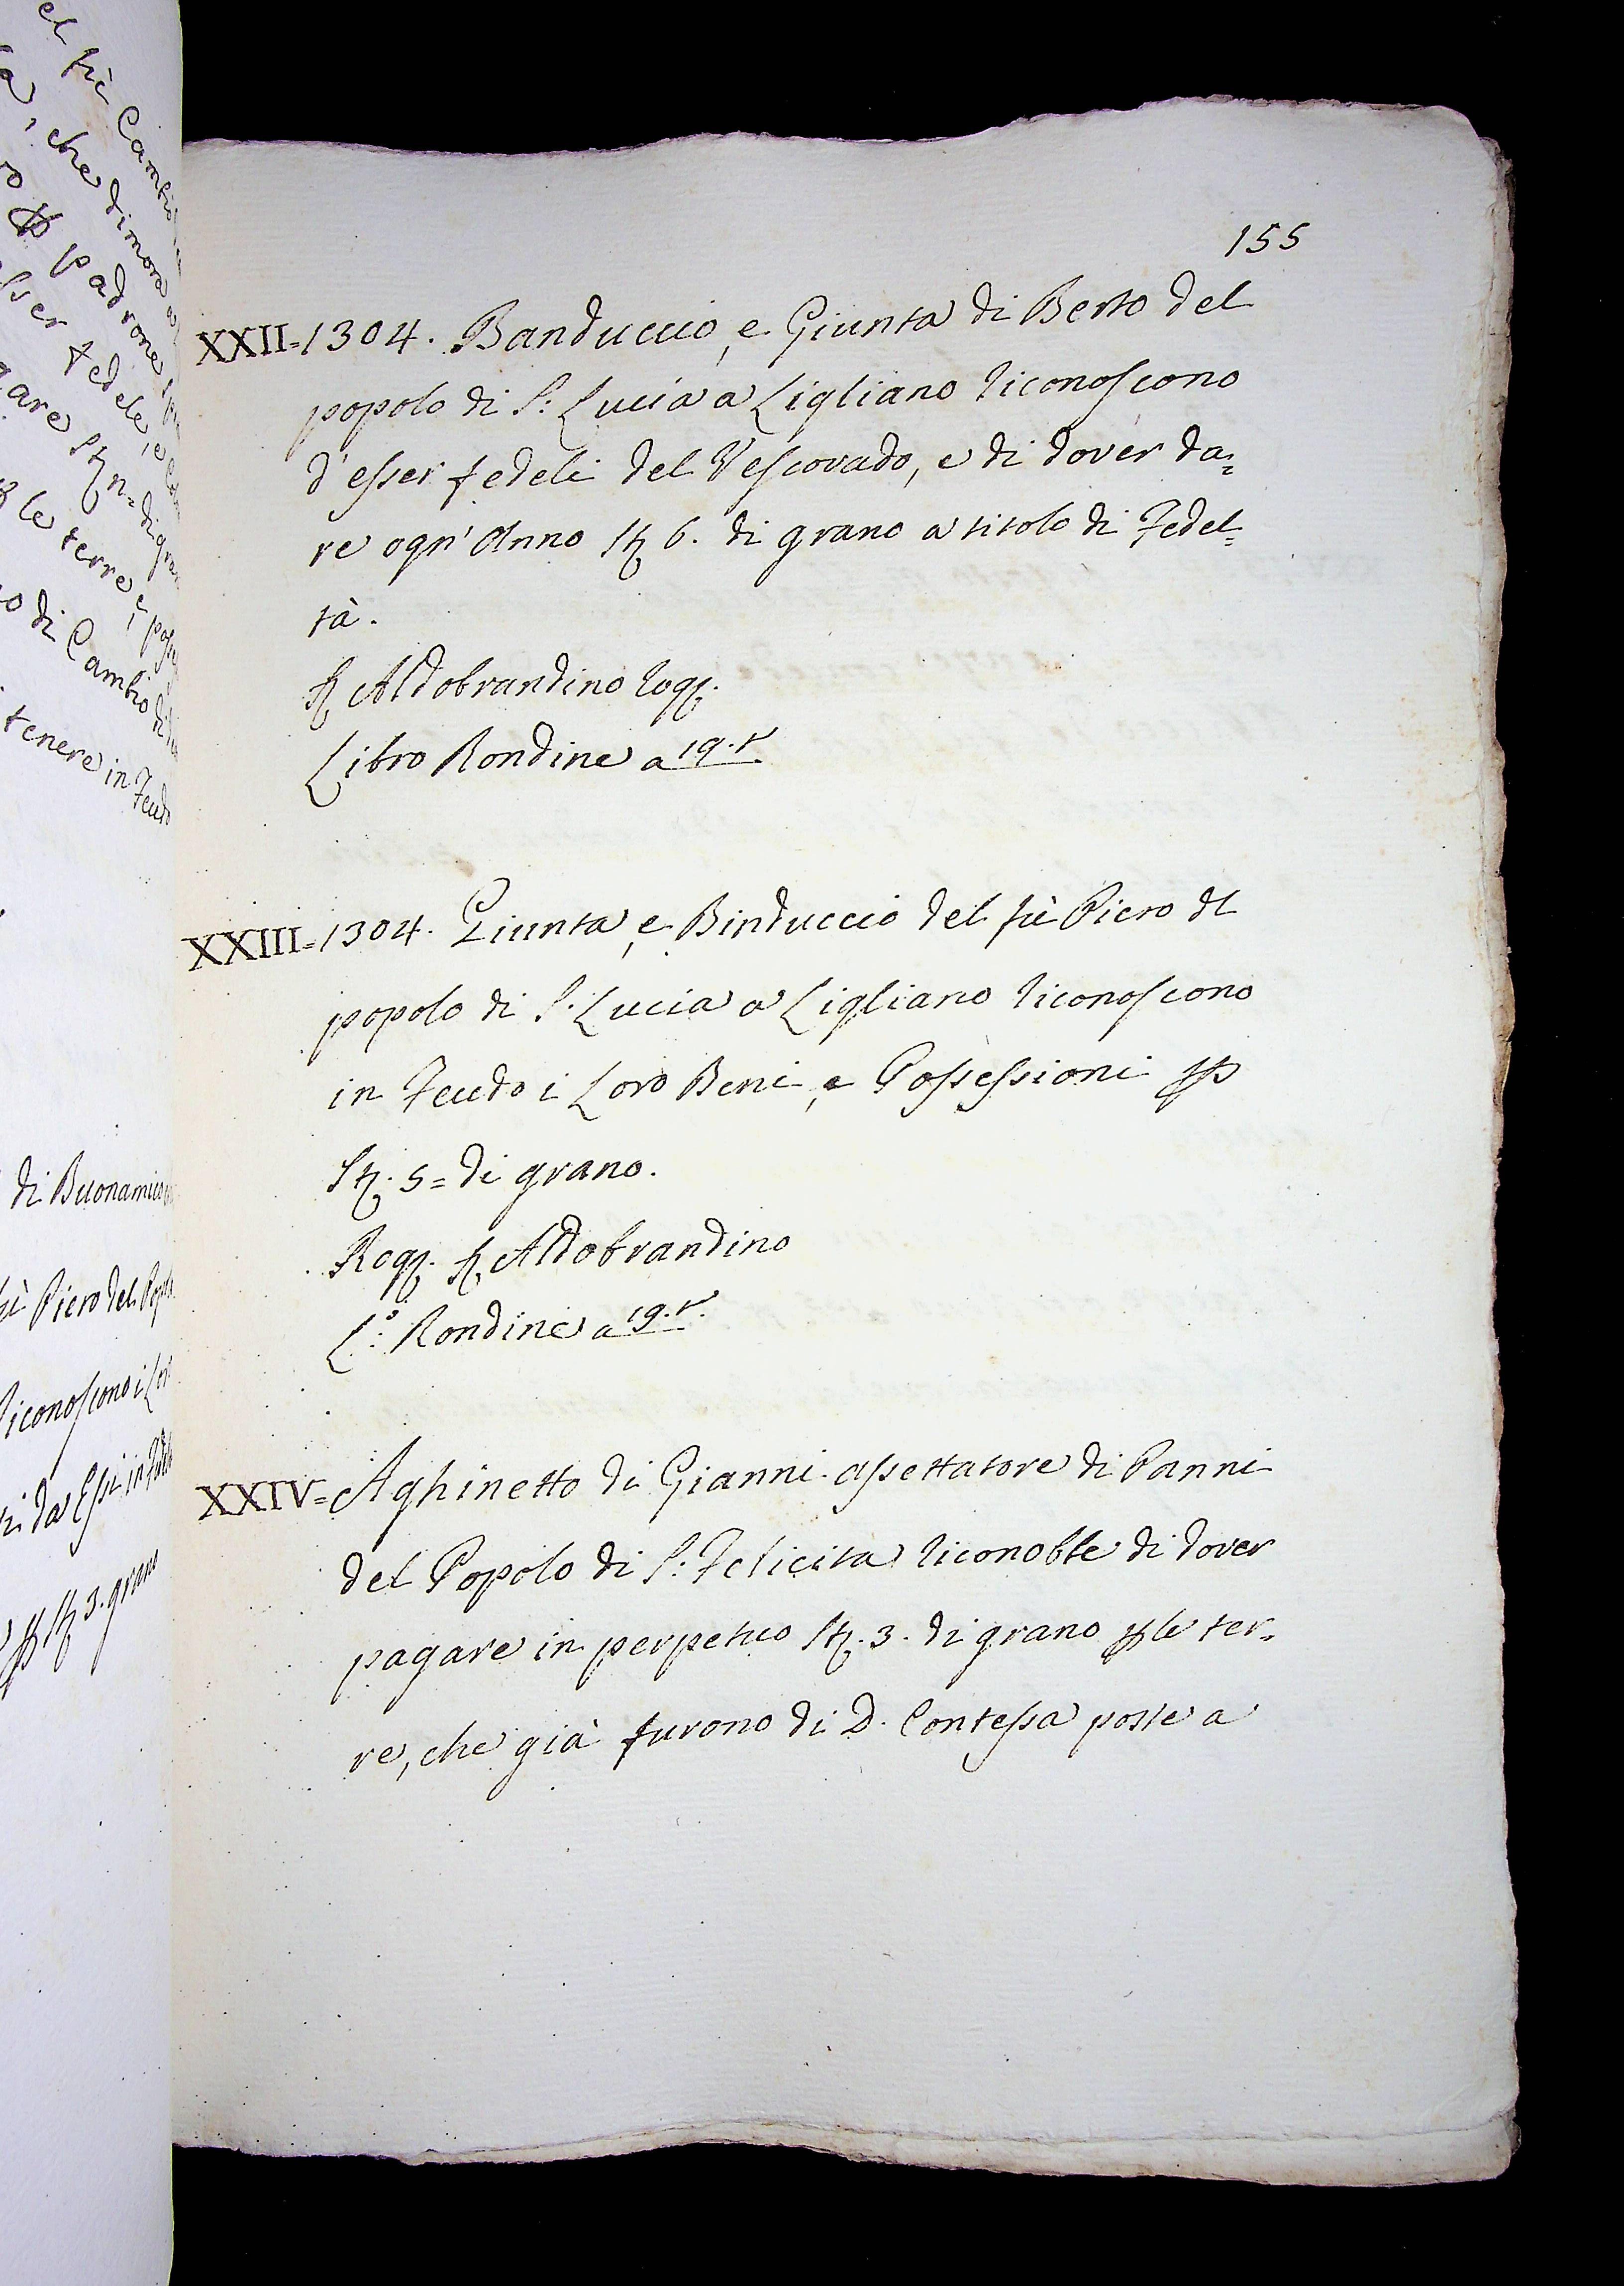 el fù Cambio
che dimora a
padrone
sser fedele, e
gare St. n= di gran
le terre, e
o di Cambio di
tenere in Feudo
di Buonamico
fù Piero del Popolo
riconoscono i
da Essi in
St. 3. grano
155
XXII=1304. Banduccio, e Giunta di Berto del
popolo di S: Lucia a Ligliano riconoscono
d'esser fedeli del Vescovado, e di dover da=
re ogn' Anno St. 6. di grano a titolo di Fedel=
tà.
S. Aldobrandino rog.
Libro Rondine a 19. r.
XXIII=1304. Giunta, e Binduccio del fù Piero dl
popolo di S. Lucia a Ligliano riconoscono
in Feudo i Loro Beni, e Possessioni p
St. 5= di grano.
Rog. S. Aldobrandino
L.° Rondine a 19. r.
XXIV= Aghinetto di Gianni assettatore di Panni
del Popolo di S: Felicita riconobbe di dover
pagare in perpetuo St. 3. di grano p le ter=
re, che già furono di D. Contessa poste a